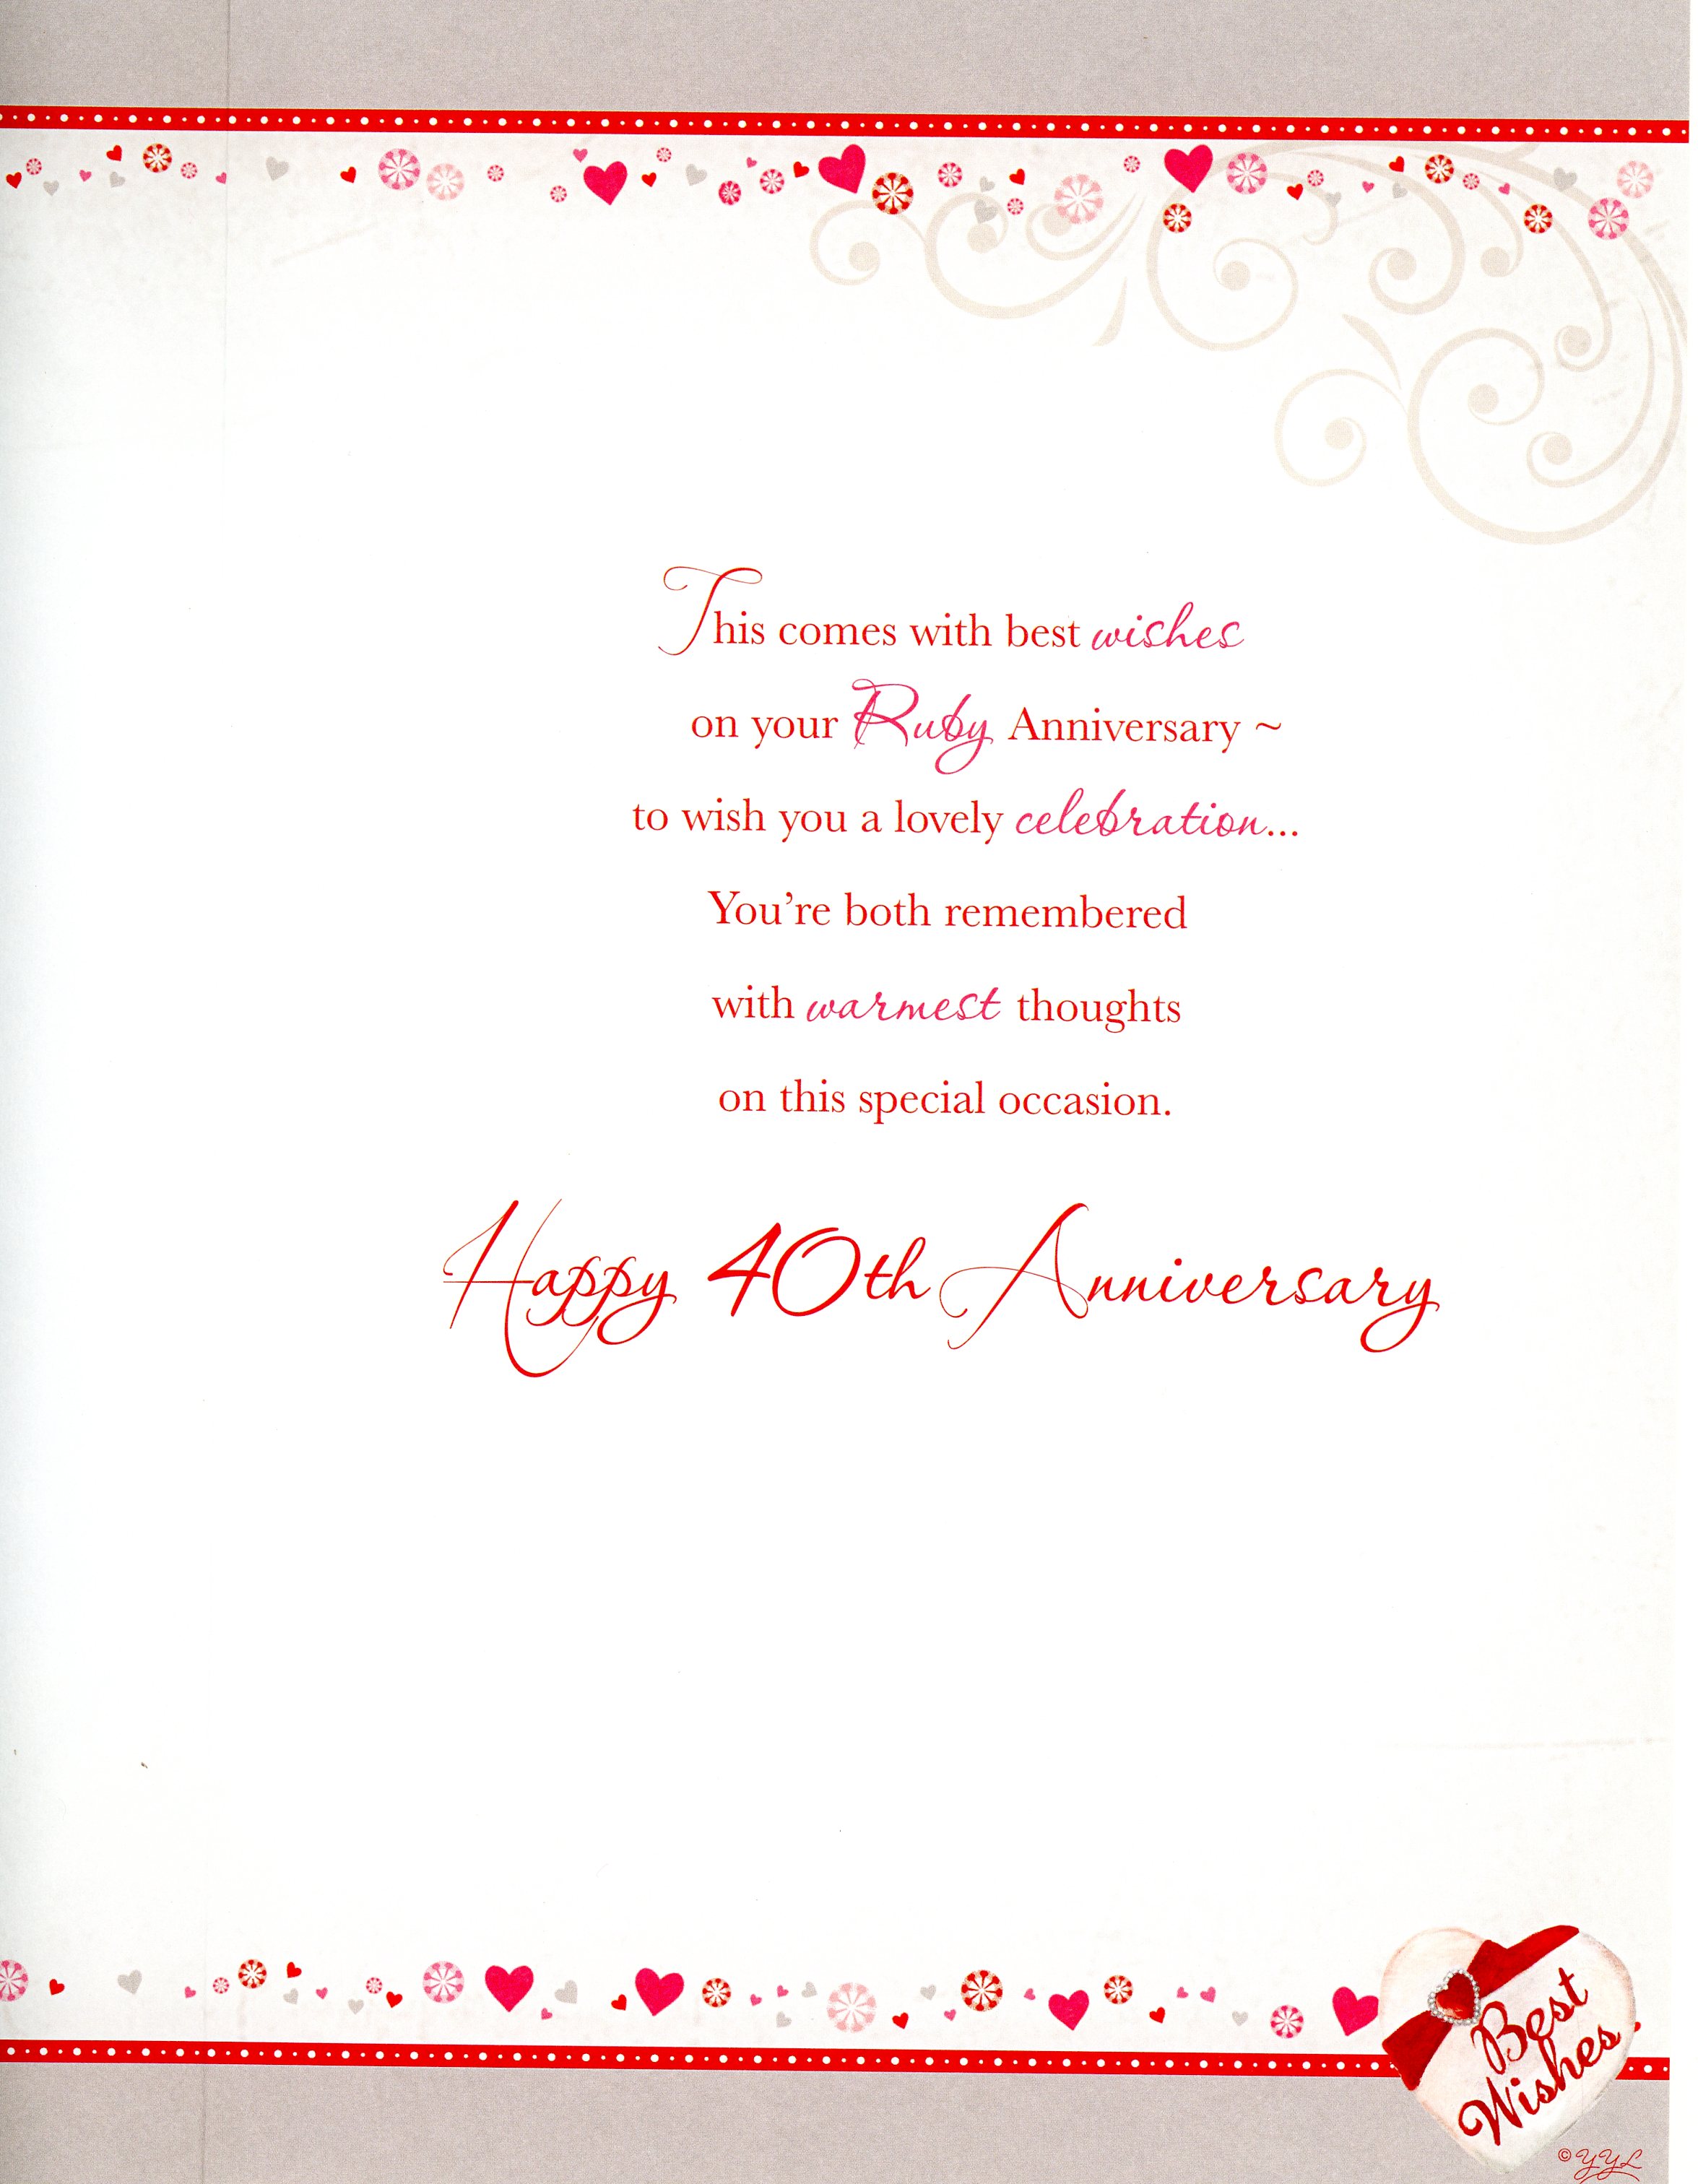 This comes with best wishes
on your Ruby Anniversary ~
to wish you a lovely celebration...
You're both remembered
with warmest thoughts
on this special occasion.
Happy 40th Anniversary
Best
Wishes
© YYL